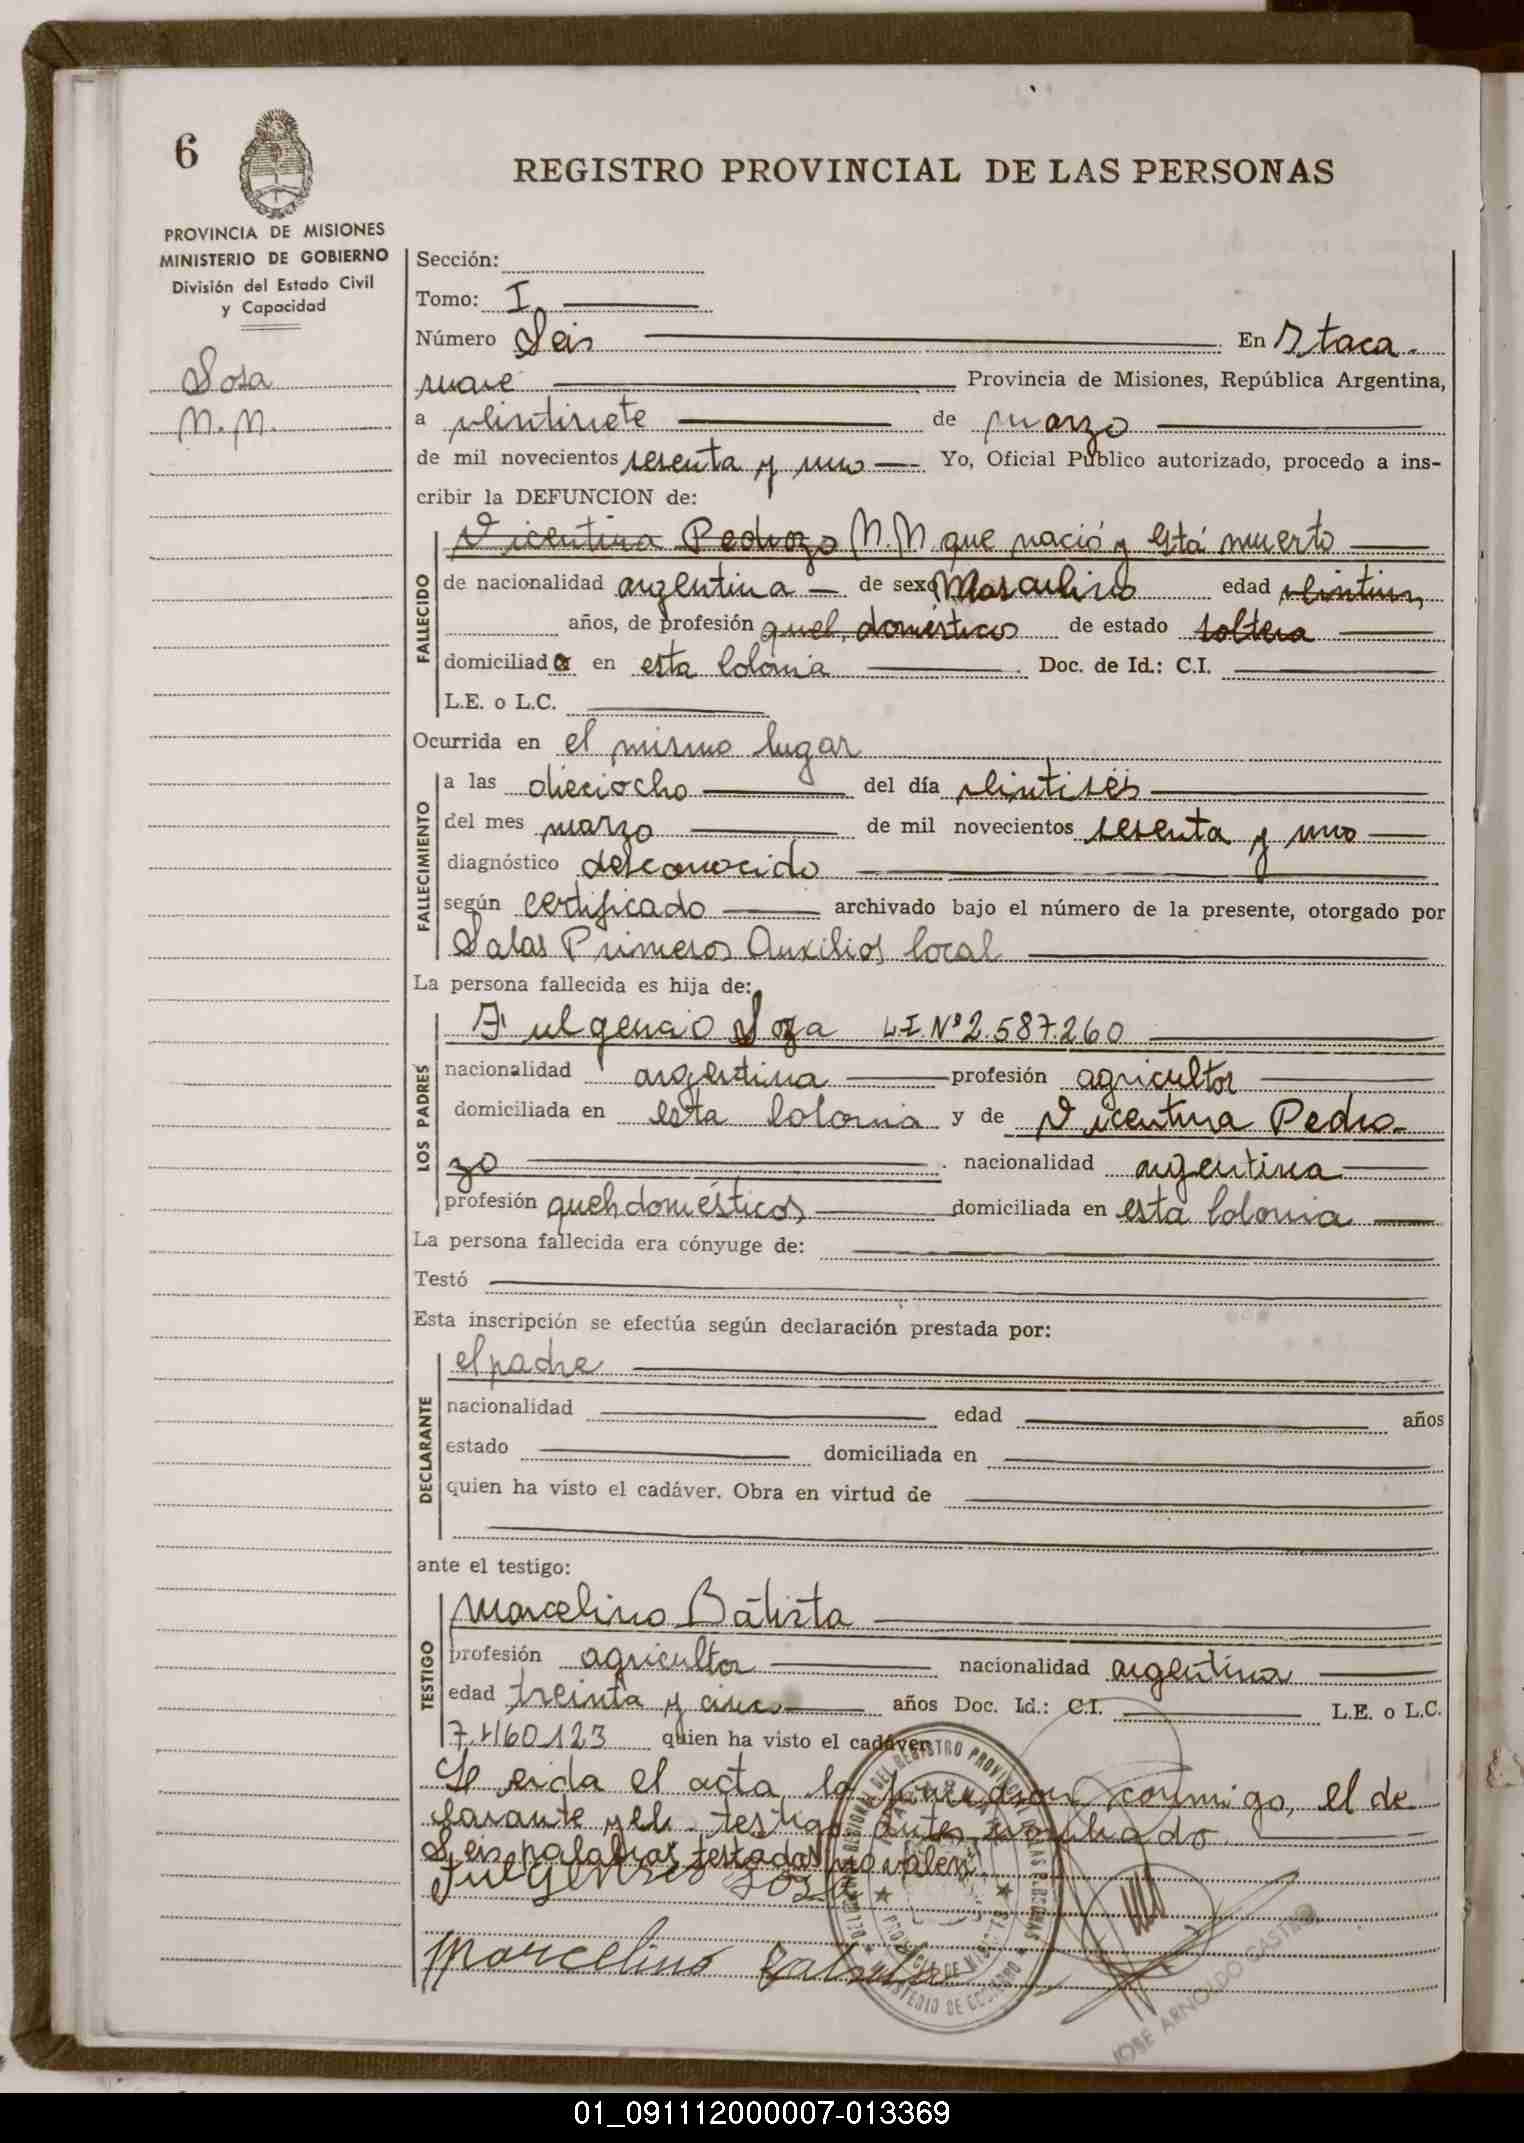 6
REGISTRO PROVINCIAL DE LAS PERSONAS
PROVINCIA DE MISIONES
MINISTERIO DE GOBIERNO
División del Estado Civil
y Capacidad
Sosa
N.N.
Sección:
Tomo: I
Número Seis En Itaca-
ruaré Provincia de Misiones, República Argentina,
a veintisiete de marzo
de mil novecientos sesenta y uno Yo, Oficial Público autorizado, procedo a ins-
cribir la DEFUNCION de:
FALLECIDO
Vicentina Pedrozo N.N que nació y está muerto
de nacionalidad argentina de sexo Masculino edad
años, de profesión queh. domésticos de estado soltera
domiciliado en esta Colonia Doc. de Id.: C.I.
L.E. o L.C.
Ocurrida en el mismo lugar
FALLECIMIENTO
a las dieciocho del día veintiséis
del mes marzo de mil novecientos sesenta y uno
diagnóstico desconocido
según certificado archivado bajo el número de la presente, otorgado por
Salas Primeros Auxilios local
La persona fallecida es hija de:
LOS PADRES
Fulgencio Soza L.I. Nº 2.587.260
nacionalidad argentina profesión agricultor
domiciliada en esta Colonia y de Vicentina Pedro-
zo nacionalidad argentina
profesión queh domésticos domiciliada en esta Colonia
La persona fallecida era cónyuge de:
Testó
Esta inscripción se efectúa según declaración prestada por:
DECLARANTE
el padre
nacionalidad edad años
estado domiciliada en
quien ha visto el cadáver. Obra en virtud de
ante el testigo:
TESTIGO
Marcelino Batista
profesión agricultor nacionalidad argentina
edad treinta y cinco años Doc. Id.: C.I. L.E. o L.C.
7.460.123 quien ha visto el cadáver.
el acta, la conmigo, el de
clarante y el testigo antes
Seis palabras testadas no valen
Fulgensio Sosa
Marcelino Batista
JOSE ARNOLDO CASTRO
01_091112000007-013369